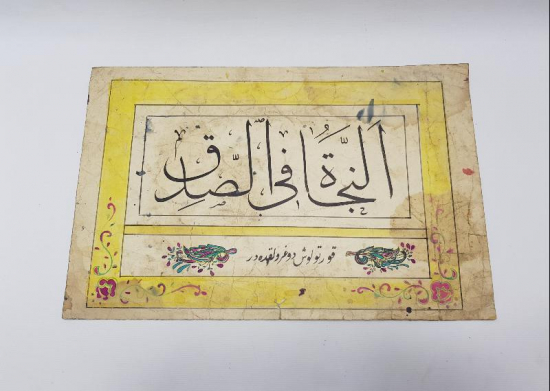 اَلنَّجَاةُ فِى الصِّدْقِ
قورتولوش دوغرولقده در